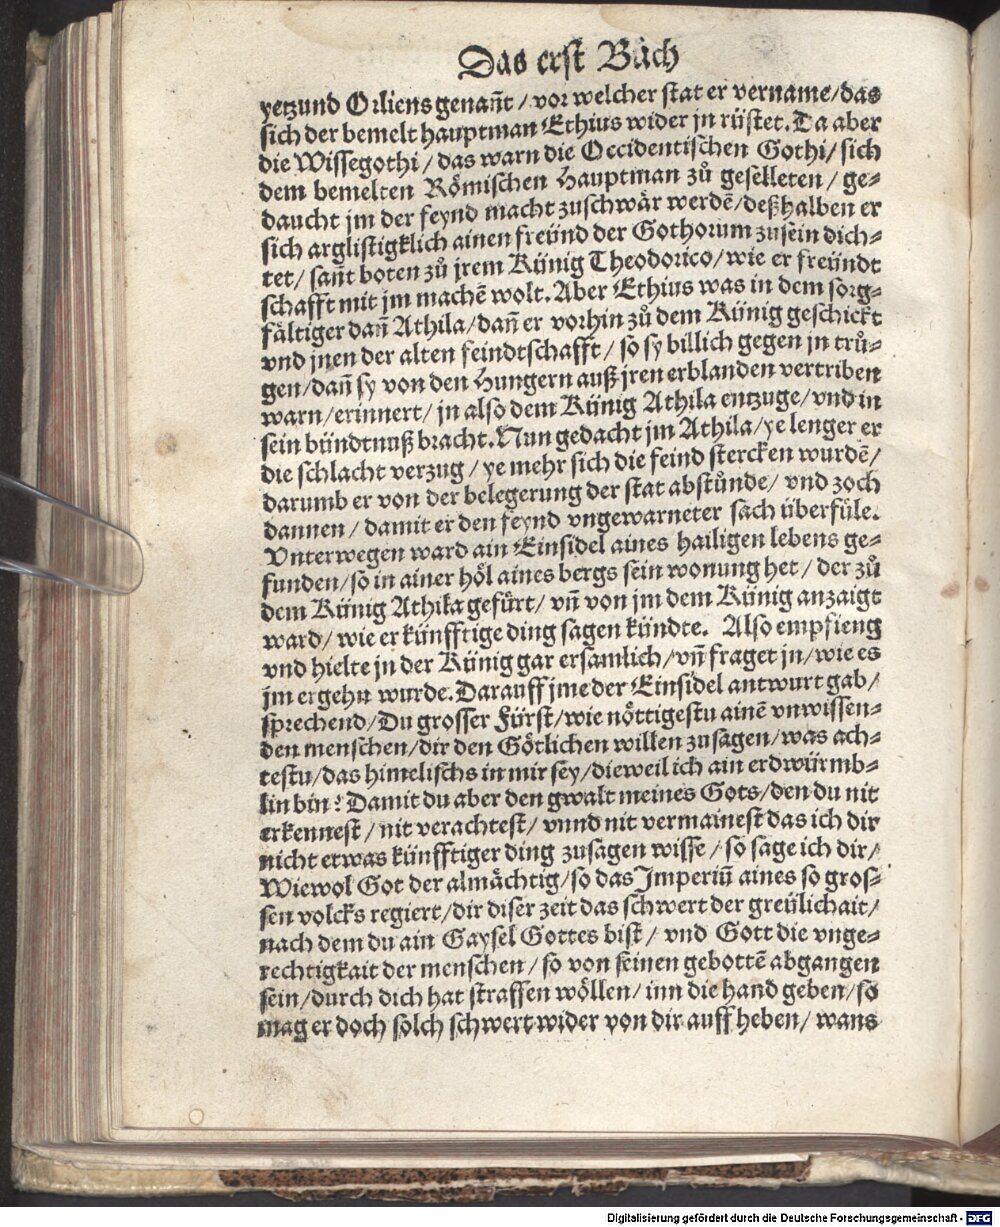 Das erst Bůch
yetzund Orliens genañt / vor welcher stat er vername / das
sich der bemelt hauptman Ethius wider jn rüstet. Da aber
die Wissegothi / das warn die Occidentischen Gothi / sich
dem bemelten Römischen Hauptman zů geselleten / ge⸗
daucht jm der feynd macht zuschwär werdẽ / deßhalben er
sich arglistigklich ainen freünd der Gothorum zusein dich⸗
tet / sañt boten zů jrem Künig Theodorico / wie er freündt
schafft mit jm machẽ wolt. Aber Ethius was in dem sorg⸗
fältiger dañ Athila / dañ er vorhin zů dem Künig geschickt
vnd jnen der alten feindtschafft / so sy billich gegen jn trů⸗
gen / dañ sy von den Hungern auß jren erblanden vertriben
warn / erinnert / jn also dem Künig Athila entzuge / vnd in
sein bündtnuß bracht. Nun gedacht jm Athila / ye lenger er
die schlacht verzug / ye mehr sich die feind stercken wurdẽ /
darumb er von der belegerung der stat abstůnde / vnd zoch
dannen / damit er den feynd vngewarneter sach überfüle.
Vnterwegen ward ain Einsidel aines hailigen lebens ge⸗
funden / so in ainer höl aines bergs sein wonung het / der zů
dem Künig Athila gefürt / vñ von jm dem Künig anzaigt
ward / wie er künfftige ding sagen kündte. Also empfieng
vnd hielte jn der Künig gar ersamlich / vñ fraget jn / wie es
jm ergehn wurde. Darauff jme der Einsidel antwurt gab /
sprechend / Du grosser Fürst / wie nöttigestu ainẽ vnwissen⸗
den menschen / dir den Götlichen willen zusagen / was ach⸗
testu / das himelischs in mir sey / dieweil ich ain erdwürmb⸗
lin bin? Damit du aber den gwalt meines Gots / den du nit
erkennest / nit verachtest / vnnd nit vermainest das ich dir
nicht etwas künfftiger ding zusagen wisse / so sage ich dir /
Wiewol Got der almächtig / so das Imperiũ aines so gros⸗
sen volcks regiert / dir diser zeit das schwert der greülichait /
nach dem du ain Gaysel Gottes bist / vnd Gott die vnge⸗
rechtigkait der menschen / so von seinen gebottẽ abgangen
sein / durch dich hat straffen wöllen / inn die hand geben / so
mag er doch solch schwert wider von dir auff heben / wans
Digitalisierung gefördert durch die Deutsche Forschungsgemeinschaft - DFG